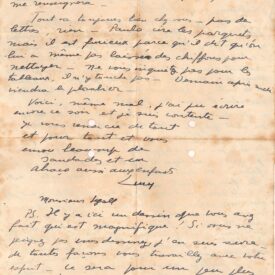 me renseignera -
Tout a toujours bien chez vous - pas de
lettres rien - Paulo cire les parquets
mais il est furieux parce qu'il dit qu'on
lui a même pas laissé de chiffons pour
nettoyer - ne vous inquiétez pas pour les
tableaux, il n'y touche pas - Demain après midi
viendra le plombier -
Voici, même mal, j'ai pu écrire
encore ce soir et je suis contente -
je vous remercie de tout
et pour tout et vous
envoi beaucoup de
saudades et un
abraço aussi aux enfants
Lucy
Monsieur
PS. Il y a ici un dessin que vous avez
fait qui est magnifique! Si vous ne
peignez pas un
de toute façons vous travaillez avec votre
esprit - ce sera pour un jour plus